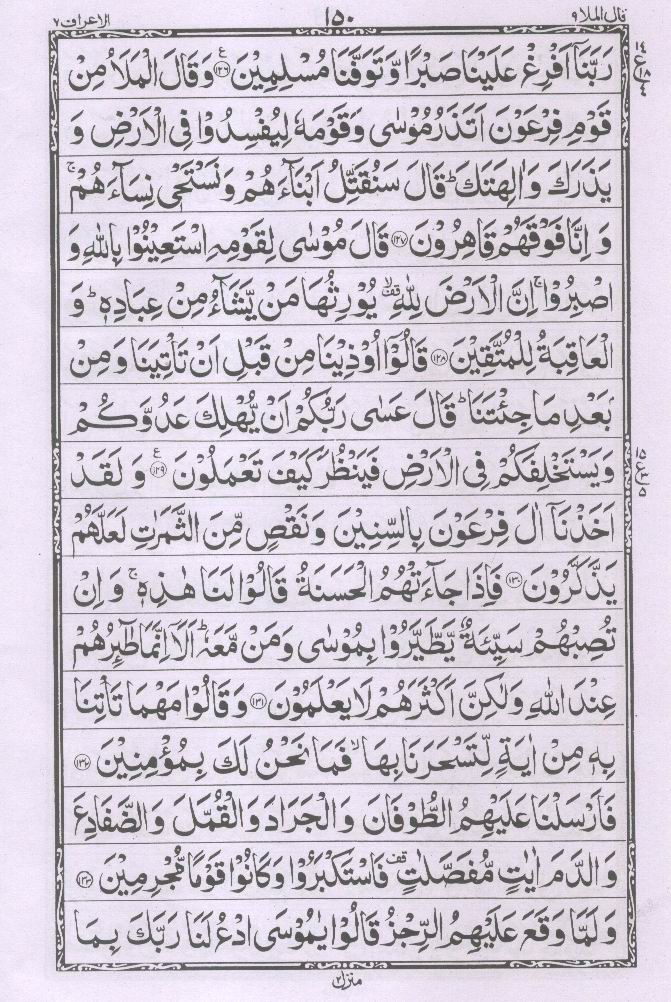 قال الملا ٩ ١٥٠ الاعراف ٧
رَبَّنَاۤ اَفْرِغْ عَلَیْنَا صَبْرًا وَّ تَوَفَّنَا مُسْلِمِیْنَ ﴿۱۲۶﴾ع وَ قَالَ الْمَلَاُ مِنْ
قَوْمِ فِرْعَوْنَ اَتَذَرُ مُوْسٰی وَ قَوْمَهٗ لِیُفْسِدُوْا فِی الْاَرْضِ وَ
یَذَرَكَ وَ اٰلِهَتَكَ ؕ قَالَ سَنُقَتِّلُ اَبْنَآءَهُمْ وَ نَسْتَحْیٖ نِسَآءَهُمْ ۚ
وَ اِنَّا فَوْقَهُمْ قَاهِرُوْنَ ﴿۱۲۷﴾ قَالَ مُوْسٰی لِقَوْمِهِ اسْتَعِیْنُوْا بِاللّٰهِ وَ
اصْبِرُوْا ۚ اِنَّ الْاَرْضَ لِلّٰهِ ۙ۫ یُوْرِثُهَا مَنْ یَّشَآءُ مِنْ عِبَادِهٖ ؕ وَ
الْعَاقِبَةُ لِلْمُتَّقِیْنَ ﴿۱۲۸﴾ قَالُوْۤا اُوْذِیْنَا مِنْ قَبْلِ اَنْ تَاْتِیَنَا وَ مِنْۢ
بَعْدِ مَا جِئْتَنَا ؕ قَالَ عَسٰی رَبُّكُمْ اَنْ یُّهْلِكَ عَدُوَّكُمْ
وَ یَسْتَخْلِفَكُمْ فِی الْاَرْضِ فَیَنْظُرَ كَیْفَ تَعْمَلُوْنَ ﴿۱۲۹﴾ع وَ لَقَدْ
اَخَذْنَاۤ اٰلَ فِرْعَوْنَ بِالسِّنِیْنَ وَ نَقْصٍ مِّنَ الثَّمَرٰتِ لَعَلَّهُمْ
یَذَّكَّرُوْنَ ﴿۱۳۰﴾ فَاِذَا جَآءَتْهُمُ الْحَسَنَةُ قَالُوْا لَنَا هٰذِهٖ ۚ وَ اِنْ
تُصِبْهُمْ سَیِّئَةٌ یَّطَّیَّرُوْا بِمُوْسٰی وَ مَنْ مَّعَهٗ ؕ اَلَاۤ اِنَّمَا طٰٓئِرُهُمْ
عِنْدَ اللّٰهِ وَ لٰكِنَّ اَكْثَرَهُمْ لَا یَعْلَمُوْنَ ﴿۱۳۱﴾ وَ قَالُوْا مَهْمَا تَاْتِنَا
بِهٖ مِنْ اٰیَةٍ لِّتَسْحَرَنَا بِهَا ۙ فَمَا نَحْنُ لَكَ بِمُؤْمِنِیْنَ ﴿۱۳۲﴾
فَاَرْسَلْنَا عَلَیْهِمُ الطُّوْفَانَ وَ الْجَرَادَ وَ الْقُمَّلَ وَ الضَّفَادِعَ
وَ الدَّمَ اٰیٰتٍ مُّفَصَّلٰتٍ قف فَاسْتَكْبَرُوْا وَ كَانُوْا قَوْمًا مُّجْرِمِیْنَ ﴿۱۳۳﴾
وَ لَمَّا وَقَعَ عَلَیْهِمُ الرِّجْزُ قَالُوْا یٰمُوْسَی ادْعُ لَنَا رَبَّكَ بِمَا
منزل ٢